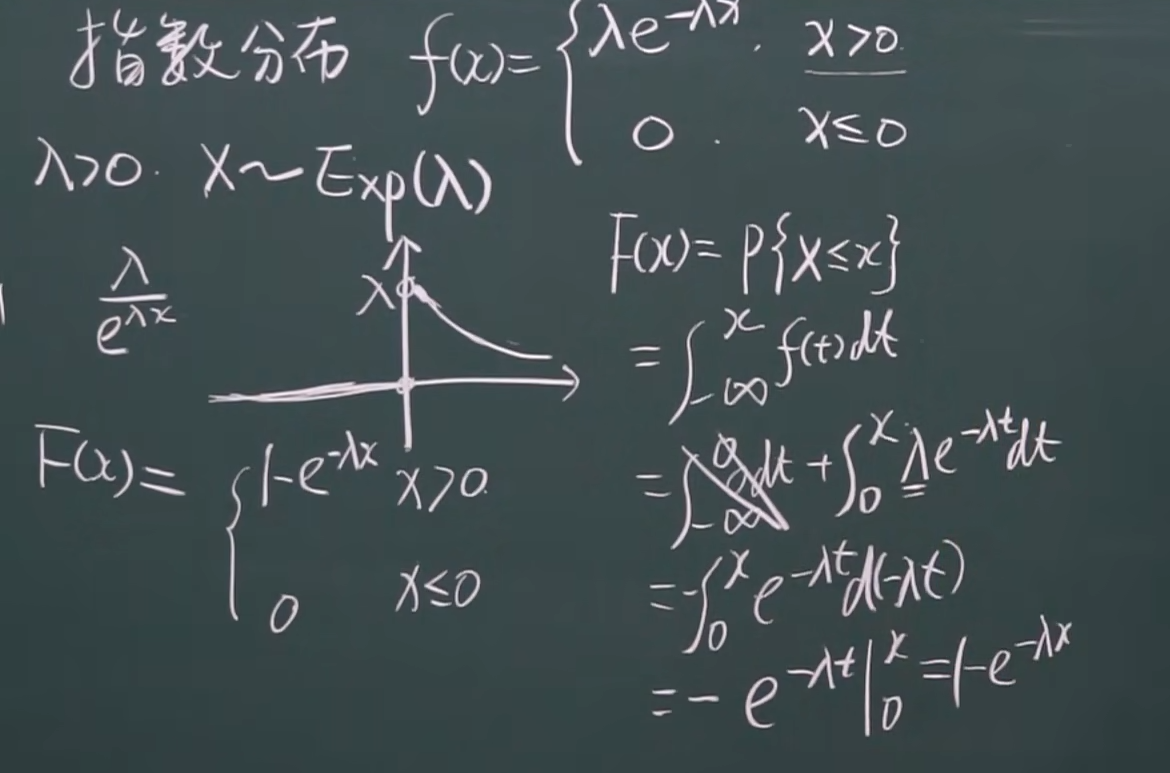 指数分布 f(x)= { λe^{-λx}. x>0.
0. x≤0
λ>0. X~Exp(λ)
λ/e^{λx}
λ
F(x)= { 1-e^{-λx} x>0.
0 x≤0
F(x)= P{X≤x}
= ∫_{-∞}^{x} f(t)dt
= ∫_{-∞}^{0} 0dt + ∫_{0}^{x} λe^{-λt}dt
= -∫_{0}^{x} e^{-λt}d(-λt)
= -e^{-λt}|_{0}^{x} = 1-e^{-λx}